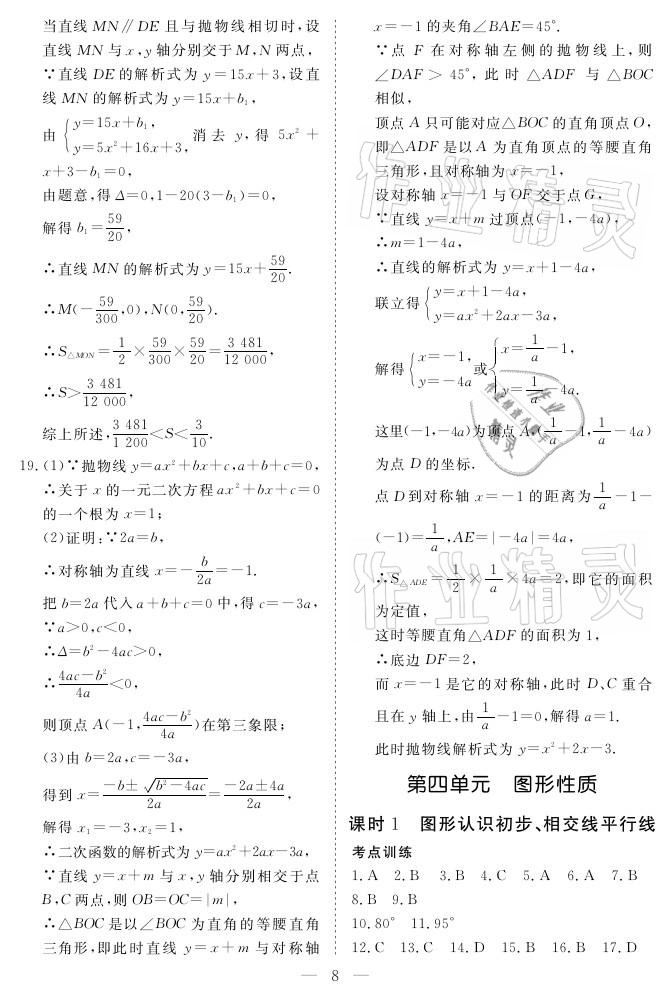 当直线 MN∥DE 且与抛物线相切时,设
直线 MN 与 x,y 轴分别交于 M,N 两点,
∵直线 DE 的解析式为 y=15x+3,设直
线 MN 的解析式为 y=15x+b₁,
由 { y=15x+b₁, y=5x²+16x+3, 消去 y,得 5x²+
x+3-b₁=0,
由题意,得 Δ=0,1-20(3-b₁)=0,
解得 b₁=59/20,
∴直线 MN 的解析式为 y=15x+59/20.
∴M(-59/300,0),N(0,59/20).
∴S△MON=1/2×59/300×59/20=3 481/12 000,
∴S>3 481/12 000,
综上所述,3 481/1 200<S<3/10.
19.(1)∵抛物线 y=ax²+bx+c,a+b+c=0,
∴关于 x 的一元二次方程 ax²+bx+c=0
的一个根为 x=1;
(2)证明:∵2a=b,
∴对称轴为直线 x=-b/2a=-1.
把 b=2a 代入 a+b+c=0 中,得 c=-3a,
∵a>0,c<0,
∴Δ=b²-4ac>0,
∴4ac-b²/4a<0,
则顶点 A(-1,4ac-b²/4a)在第三象限;
(3)由 b=2a,c=-3a,
得到 x=-b±√b²-4ac/2a=-2a±4a/2a,
解得 x₁=-3,x₂=1,
∴二次函数的解析式为 y=ax²+2ax-3a,
∵直线 y=x+m 与 x,y 轴分别相交于点
B,C 两点,则 OB=OC=|m|,
∴△BOC 是以∠BOC 为直角的等腰直角
三角形,即此时直线 y=x+m 与对称轴
x=-1 的夹角∠BAE=45°.
∵点 F 在对称轴左侧的抛物线上,则
∠DAF>45°,此时 △ADF 与 △BOC
相似,
顶点 A 只可能对应△BOC 的直角顶点 O,
即△ADF 是以 A 为直角顶点的等腰直角
三角形,且对称轴为 x=-1,
设对称轴 x=-1 与 OF 交于点 G,
∵直线 y=x+m 过顶点(-1,-4a),
∴m=1-4a,
∴直线的解析式为 y=x+1-4a,
联立得 { y=x+1-4a, y=ax²+2ax-3a,
解得 { x=-1, y=-4a 或 { x=1/a-1, y=1/a-4a.
这里(-1,-4a)为顶点 A,(1/a-1,1/a-4a)
为点 D 的坐标.
点 D 到对称轴 x=-1 的距离为1/a-1-
(-1)=1/a,AE=|-4a|=4a,
∴S△ADE=1/2×1/a×4a=2,即它的面积
为定值,
这时等腰直角△ADF 的面积为 1,
∴底边 DF=2,
而 x=-1 是它的对称轴,此时 D、C 重合
且在 y 轴上,由1/a-1=0,解得 a=1.
此时抛物线解析式为 y=x²+2x-3.
第四单元 图形性质
课时 1 图形认识初步、相交线平行线
考点训练
1.A 2.B 3.B 4.C 5.A 6.A 7.B
8.B 9.B
10.80° 11.95°
12.C 13.C 14.D 15.B 16.B 17.D
— 8 —
作业精灵
作业精灵